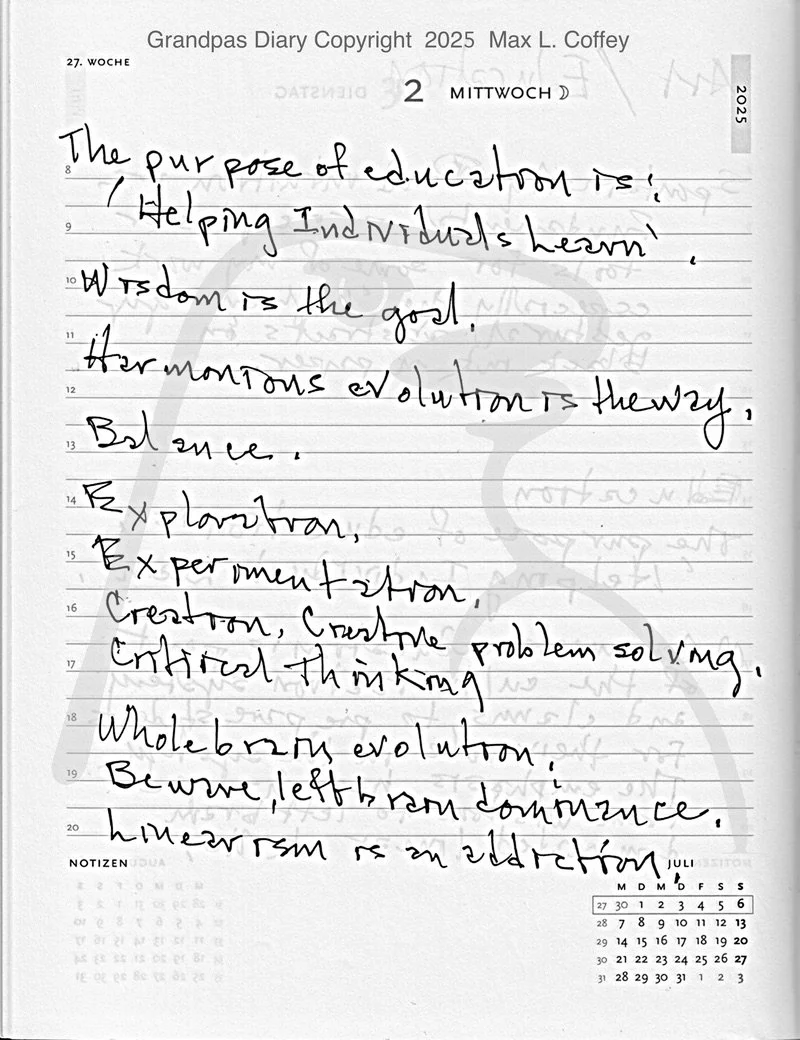 Grandpas Diary Copyright 2025 Max L. Coffey
27. WOCHE
2 MITTWOCH
2025
The purpose of education is:
'Helping Individuals Learn'.
Wisdom is the goal.
Harmonious evolution is the way.
Balance.
Exploration,
Experimentation,
Creation, Creative problem solving,
Critical thinking
Whole brain evolution.
Beware, left brain dominance.
Linearism is an addiction.
8
9
10
11
12
13
14
15
16
17
18
19
20
NOTIZEN
JULI
M D M D F S S
27 30 1 2 3 4 5 6
28 7 8 9 10 11 12 13
29 14 15 16 17 18 19 20
30 21 22 23 24 25 26 27
31 28 29 30 31 1 2 3